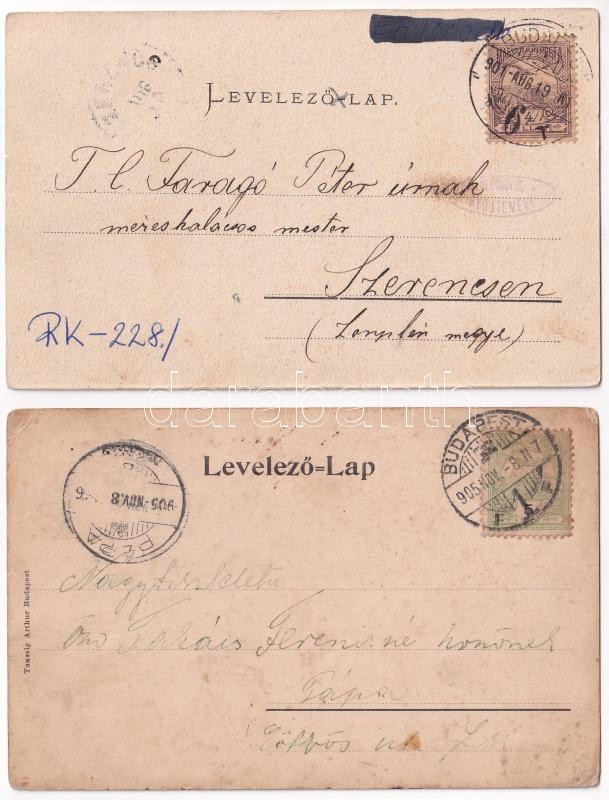 BUDAPEST
901 AUG. 19
6
LEVELEZŐ-LAP.
T. C. Faragó Péter úrnak
mézeskalácsos mester
Szerencsen
(Zemplén megye)
RK-228./
darabanth
BUDAPEST
905 NOV. 8.
1
Levelező=Lap
PÁPA
905 NOV. 8
Taussig Arthur Budapest
Nagytiszteletü
Takács Ferencné
Pápa
Eötvös